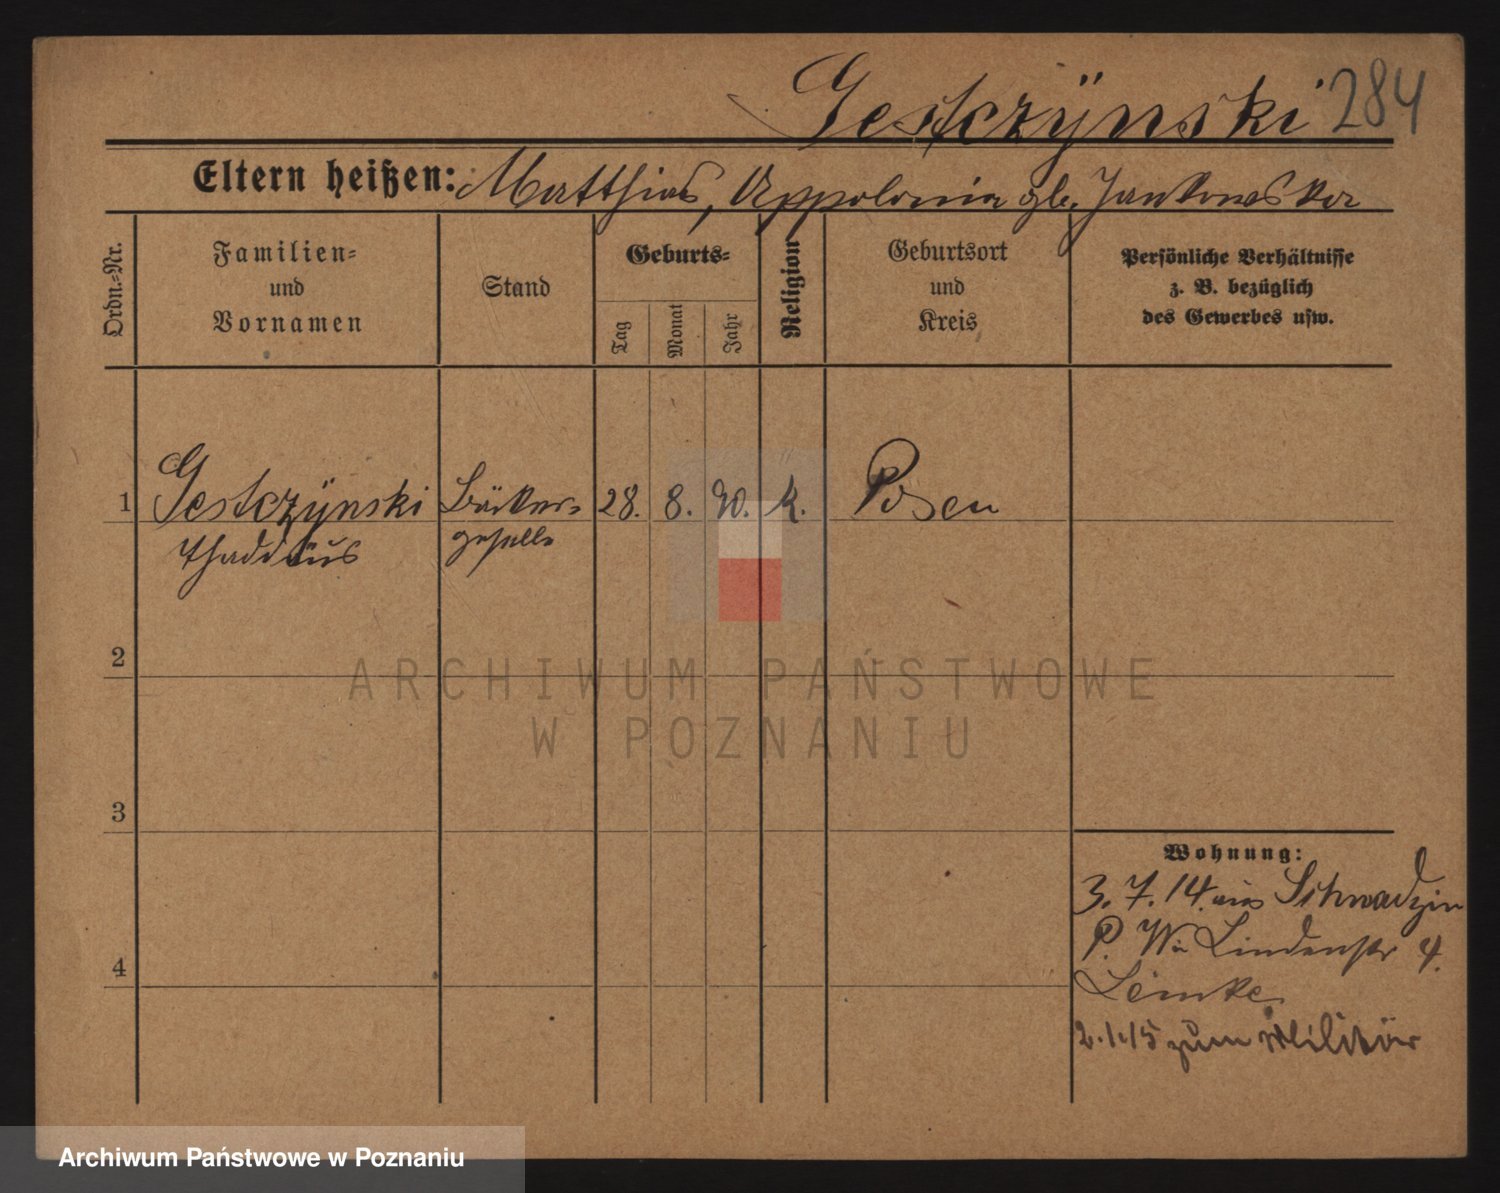 Gestczÿnski 284
Eltern heißen: Matthias, Appolonia gb. Jankowska
Ordn.-Nr.
Familien-
und
Vornamen
Stand
Geburts-
Tag
Monat
Jahr
Religion
Geburtsort
und
Kreis
Persönliche Verhältnisse
z. B. bezüglich
des Gewerbes usw.
1 Gestczÿnski Bäcker- 28. 8. 90. k. Posen
Thaddäus geselle
2
3
4
Wohnung:
3. 7. 14. aus
P. W. Lindenstr 4.
Lemke
2.1.15 zum Militär
ARCHIWUM PAŃSTWOWE
W POZNANIU
Archiwum Państwowe w Poznaniu